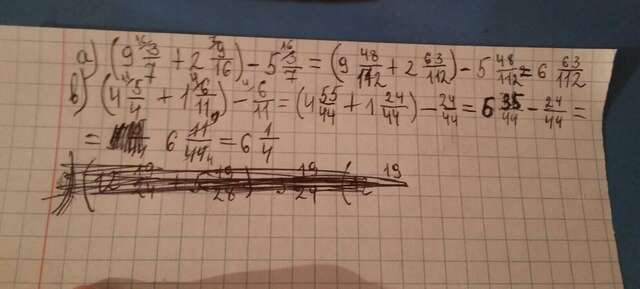 а) (9 3/7 + 2 9/16) - 5 3/7 = (9 48/112 + 2 63/112) - 5 48/112 = 6 63/112
б) (4 5/4 + 1 6/11) - 6/11 = (4 55/44 + 1 24/44) - 24/44 = 6 35/44 - 24/44 =
= 6 11/44 = 6 1/4